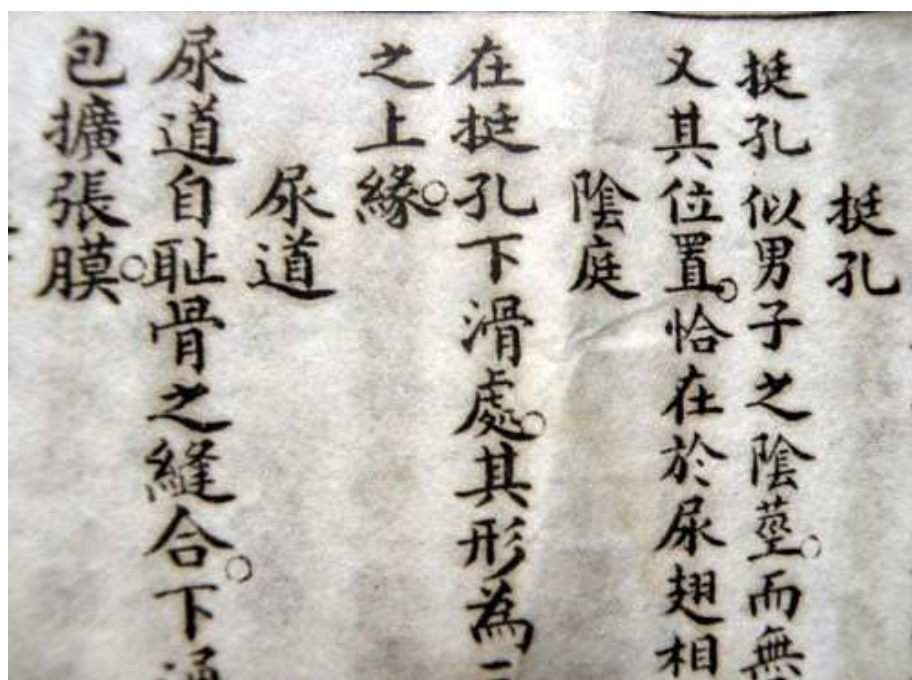 挺孔
挺孔似男子之陰莖。而無
又其位置。恰在於尿翅相
陰庭
在挺孔下滑處。其形為
之上緣。
尿道
尿道自耻骨之縫合。下通
包擴張膜。